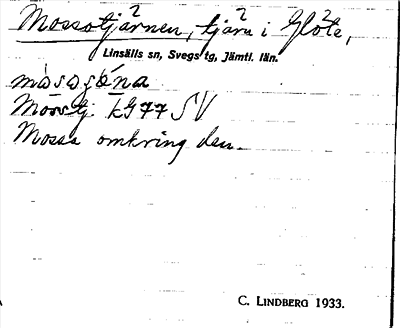 Mossotjärnen, tjärn i Glöte,
Linsälls sn, Svegs tg, Jämtl. län.
Mosstj. kG77 SV
Mossa omkring den.
C. LINDBERG 1933.